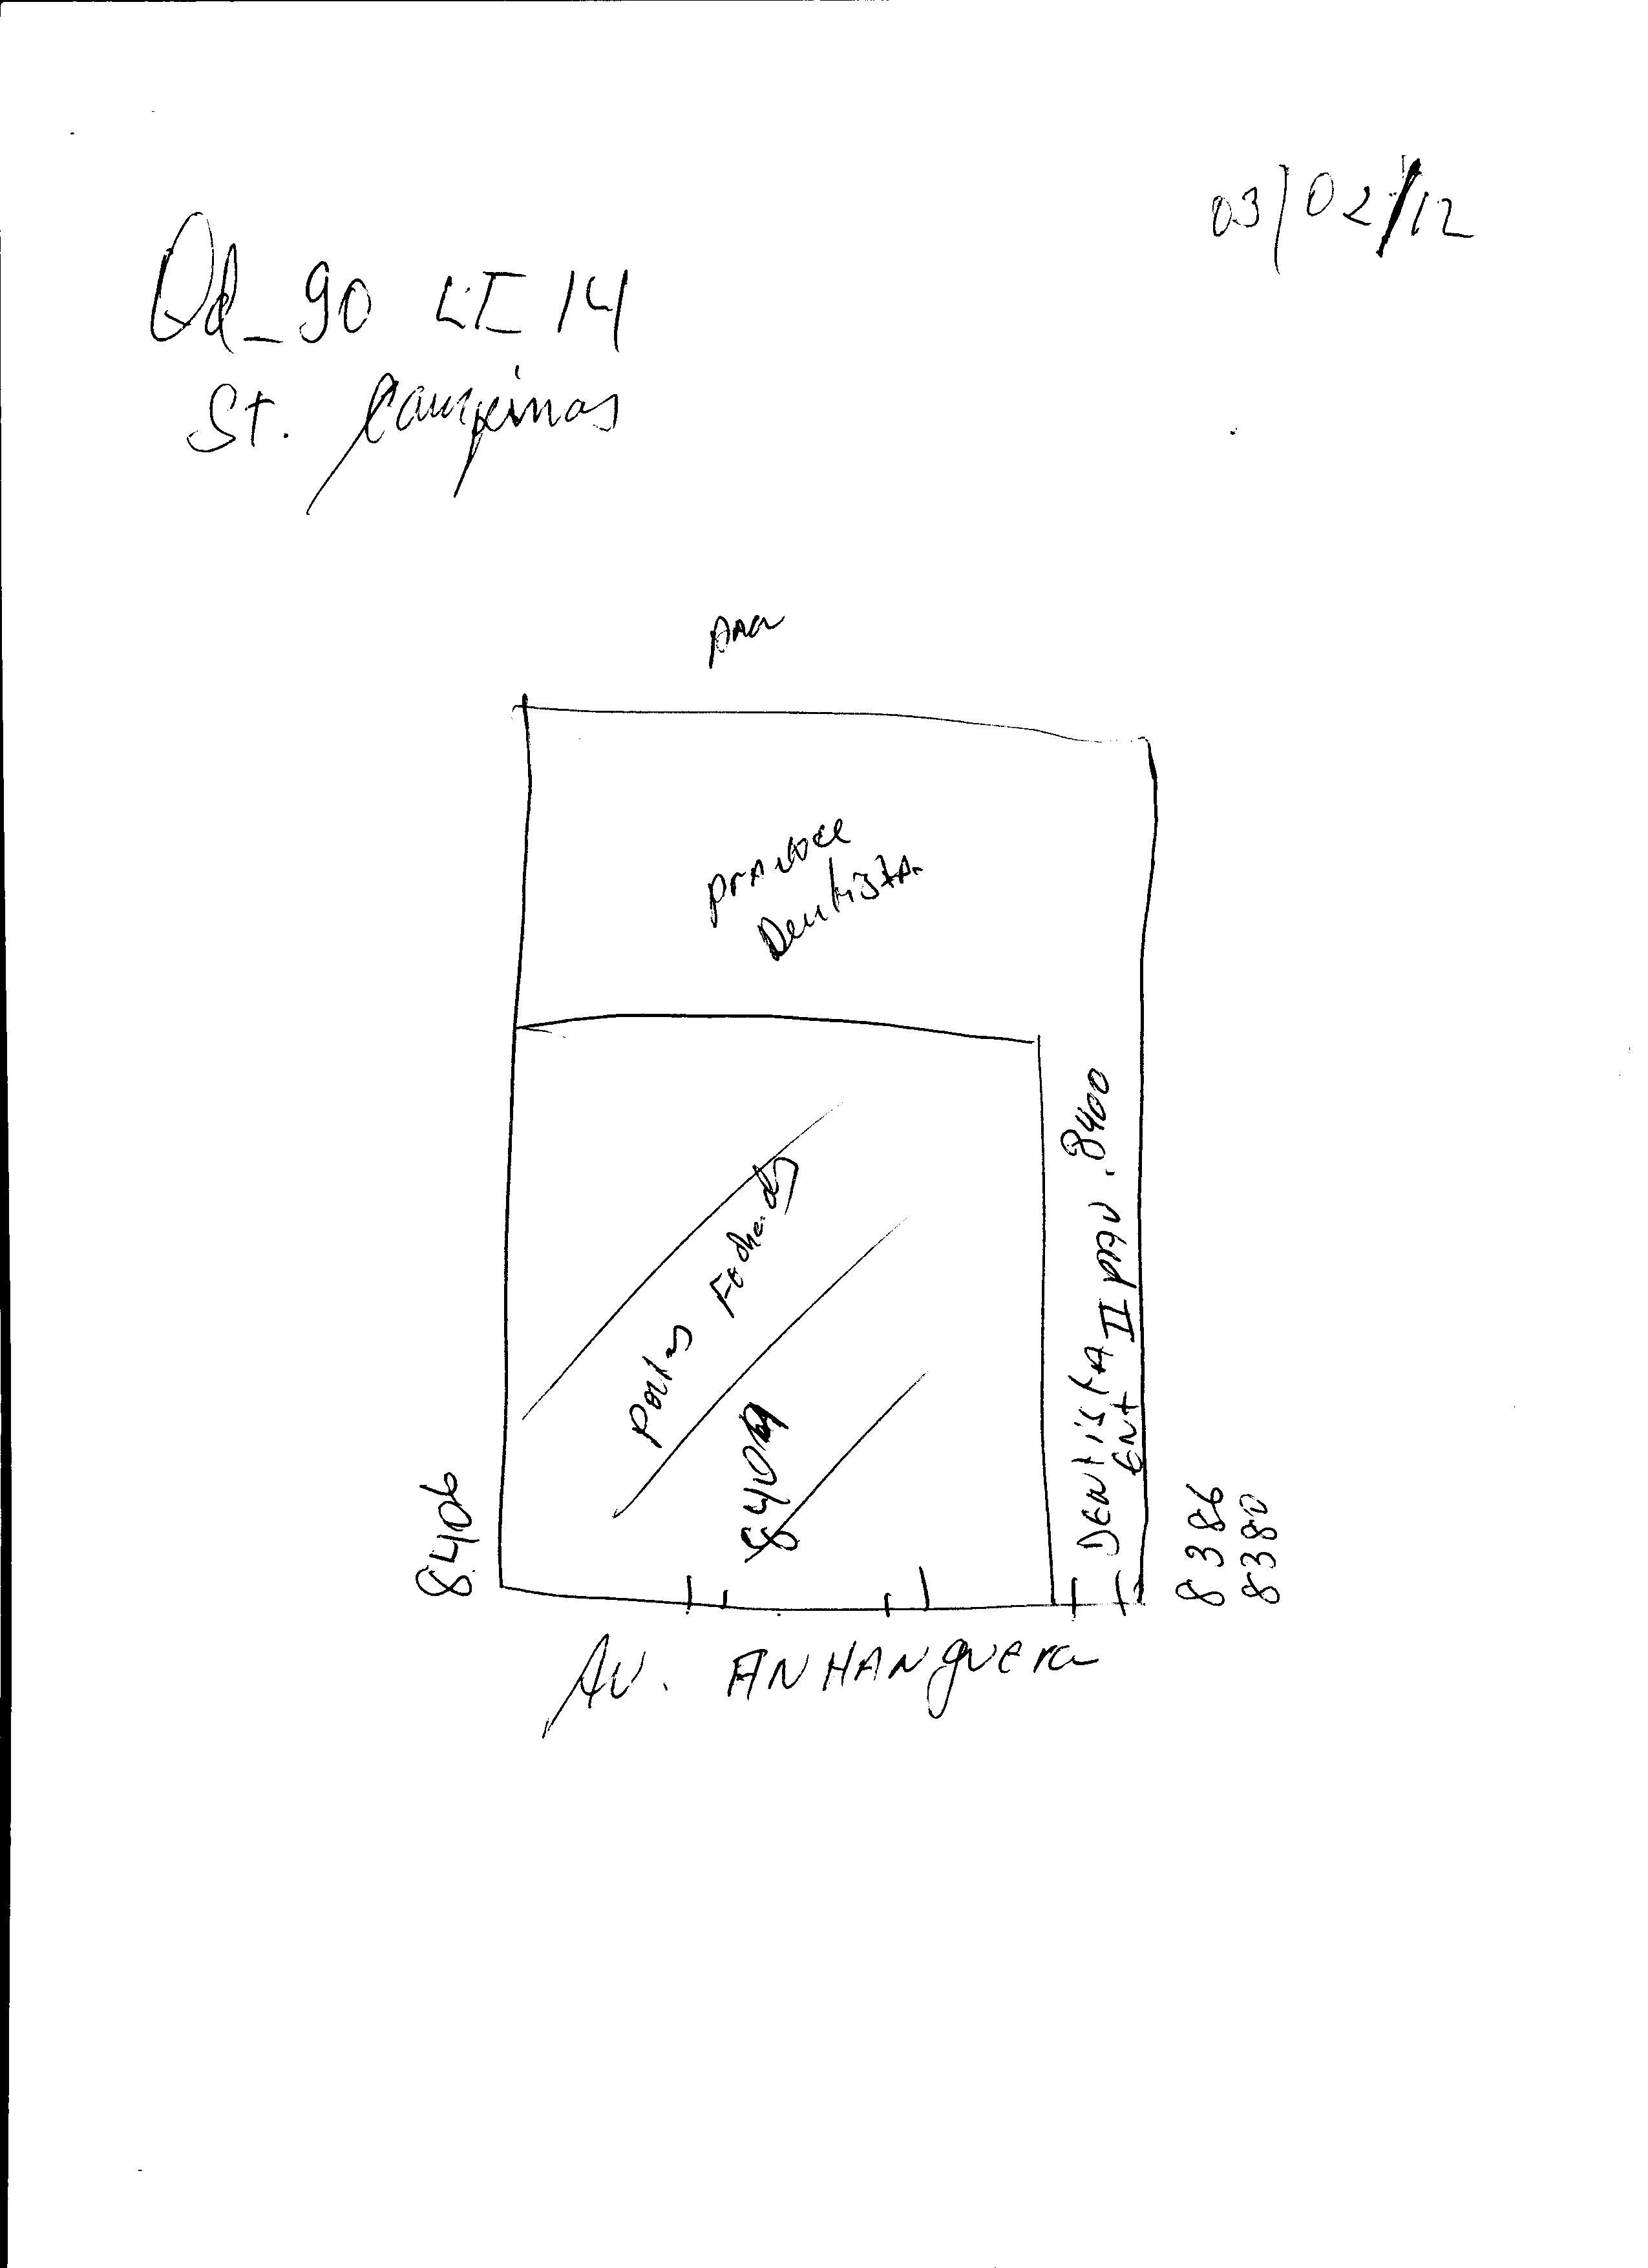 03/02/12
Qd_90 LT 14
St. Campinas
Dentista
Portas Fechads
8406
Dentista II PAV. 8400
Ent
8386
8380
Av. ANHANguera